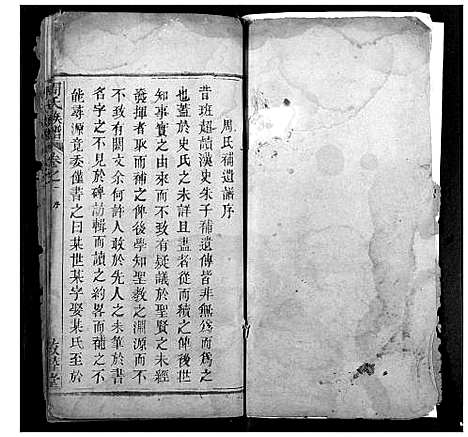 周氏補遺譜序
昔班超讀漢史朱子補遺傳皆非無為而為之
也蓋於史氏之未詳且盡者從而續之俾後世
知事實之由來而不致有疑議於聖賢之未經
發揮者取而補之俾後學知聖教之淵源而不
不致有闕文余何許人敢於先人之未筆於書
名字之不見於碑訪輯而讀之約畧而補之不
能尋源竟委僅書之曰某世某字娶某氏至於
周氏族譜 卷之一 序